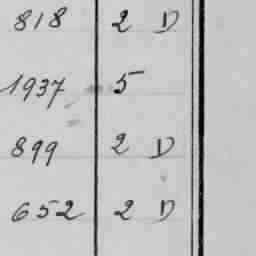 818 2 D
1937 5
899 2 D
652 2 D